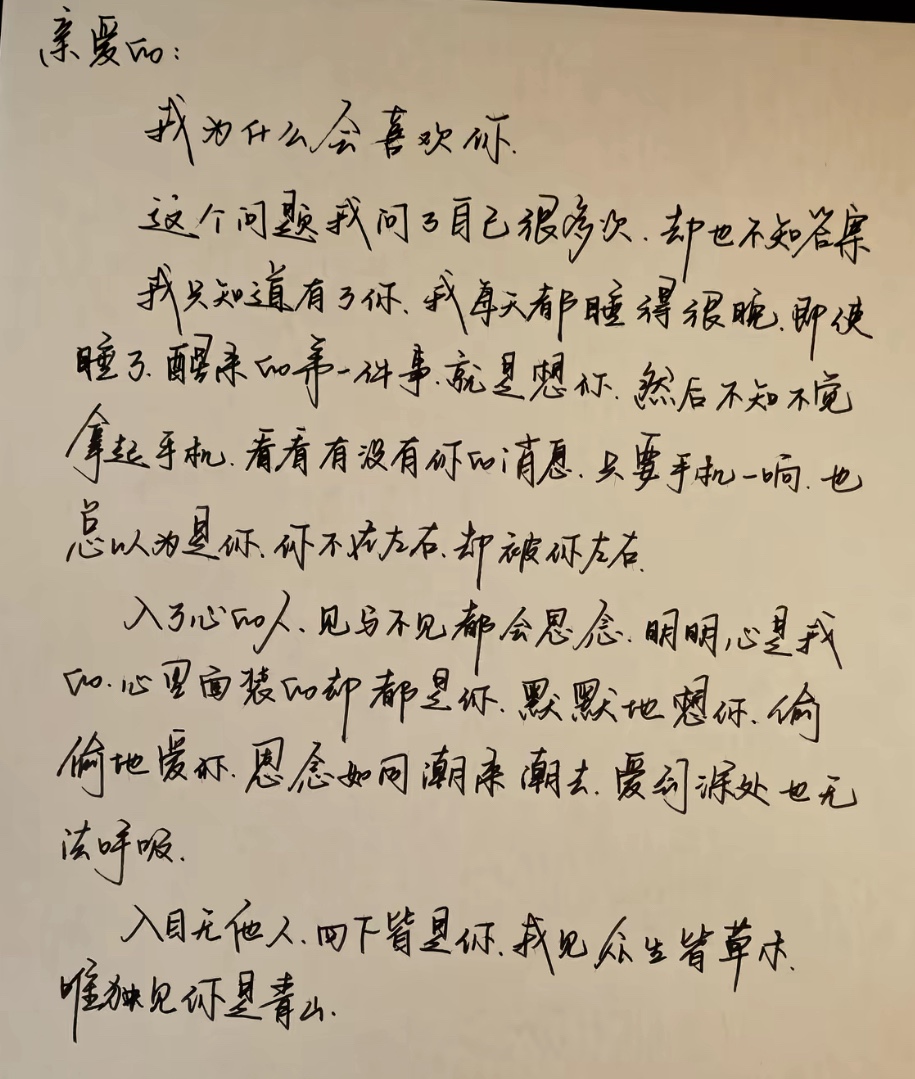 亲爱的:
我为什么会喜欢你.
这个问题我问了自己很多次.却也不知答案
我只知道有了你.我每天都睡得很晚.即使
睡了.醒来的第一件事.就是想你.然后不知不觉
拿起手机.看看有没有你的消息.只要手机一响.也
总以为是你.你不在左右.却被你左右.
入了心的人.见与不见都会思念.明明心是我
的.心里面装的却都是你.默默地想你.偷
偷地爱你.思念如同潮来潮去.爱到深处也无
法呼吸.
入目无他人.四下皆是你.我见众生皆草木.
唯独见你是青山.